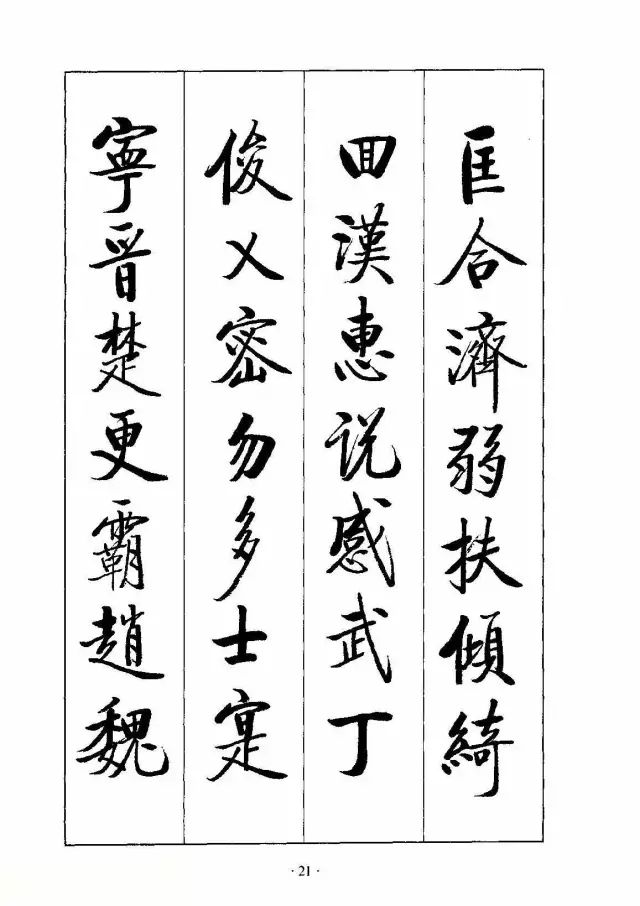 匡合濟弱扶傾綺
回漢惠说感武丁
俊乂密勿多士寔
寧晉楚更霸趙魏
·21·